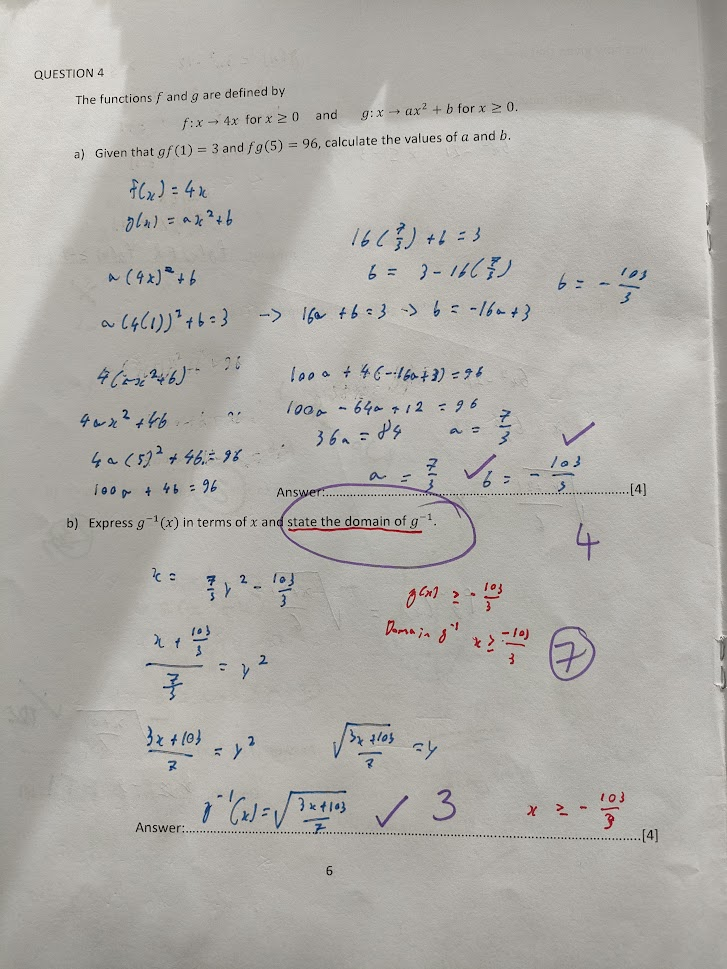 QUESTION 4
The functions f and g are defined by
f: x → 4x for x ≥ 0 and g: x → ax² + b for x ≥ 0.
a) Given that gf(1) = 3 and fg(5) = 96, calculate the values of a and b.
f(x) = 4x
g(x) = ax² + b
a(4x)² + b
a(4(1))² + b = 3 -> 16a + b = 3 -> b = -16a + 3
4(ax² + b)
4ax² + 4b
4a(5)² + 4b = 96
100a + 4b = 96
16(7/3) + b = 3
b = 3 - 16(7/3)
b = - 103/3
100a + 4(-16a+3) = 96
100a - 64a + 12 = 96
36a = 84 a = 7/3
Answer: a = 7/3 ✓ b = - 103/3 ✓ [4]
4
b) Express g⁻¹(x) in terms of x and state the domain of g⁻¹.
x = 7/3 y² - 103/3
(x + 103/3)/(7/3) = y²
(3x + 103)/7 = y²
√((3x + 103)/7) = y
g(x) ≥ - 103/3
Domain g⁻¹ x ≥ -103/3
7
Answer: g⁻¹(x) = √((3x + 103)/7) ✓ 3 x ≥ - 103/3 [4]
6